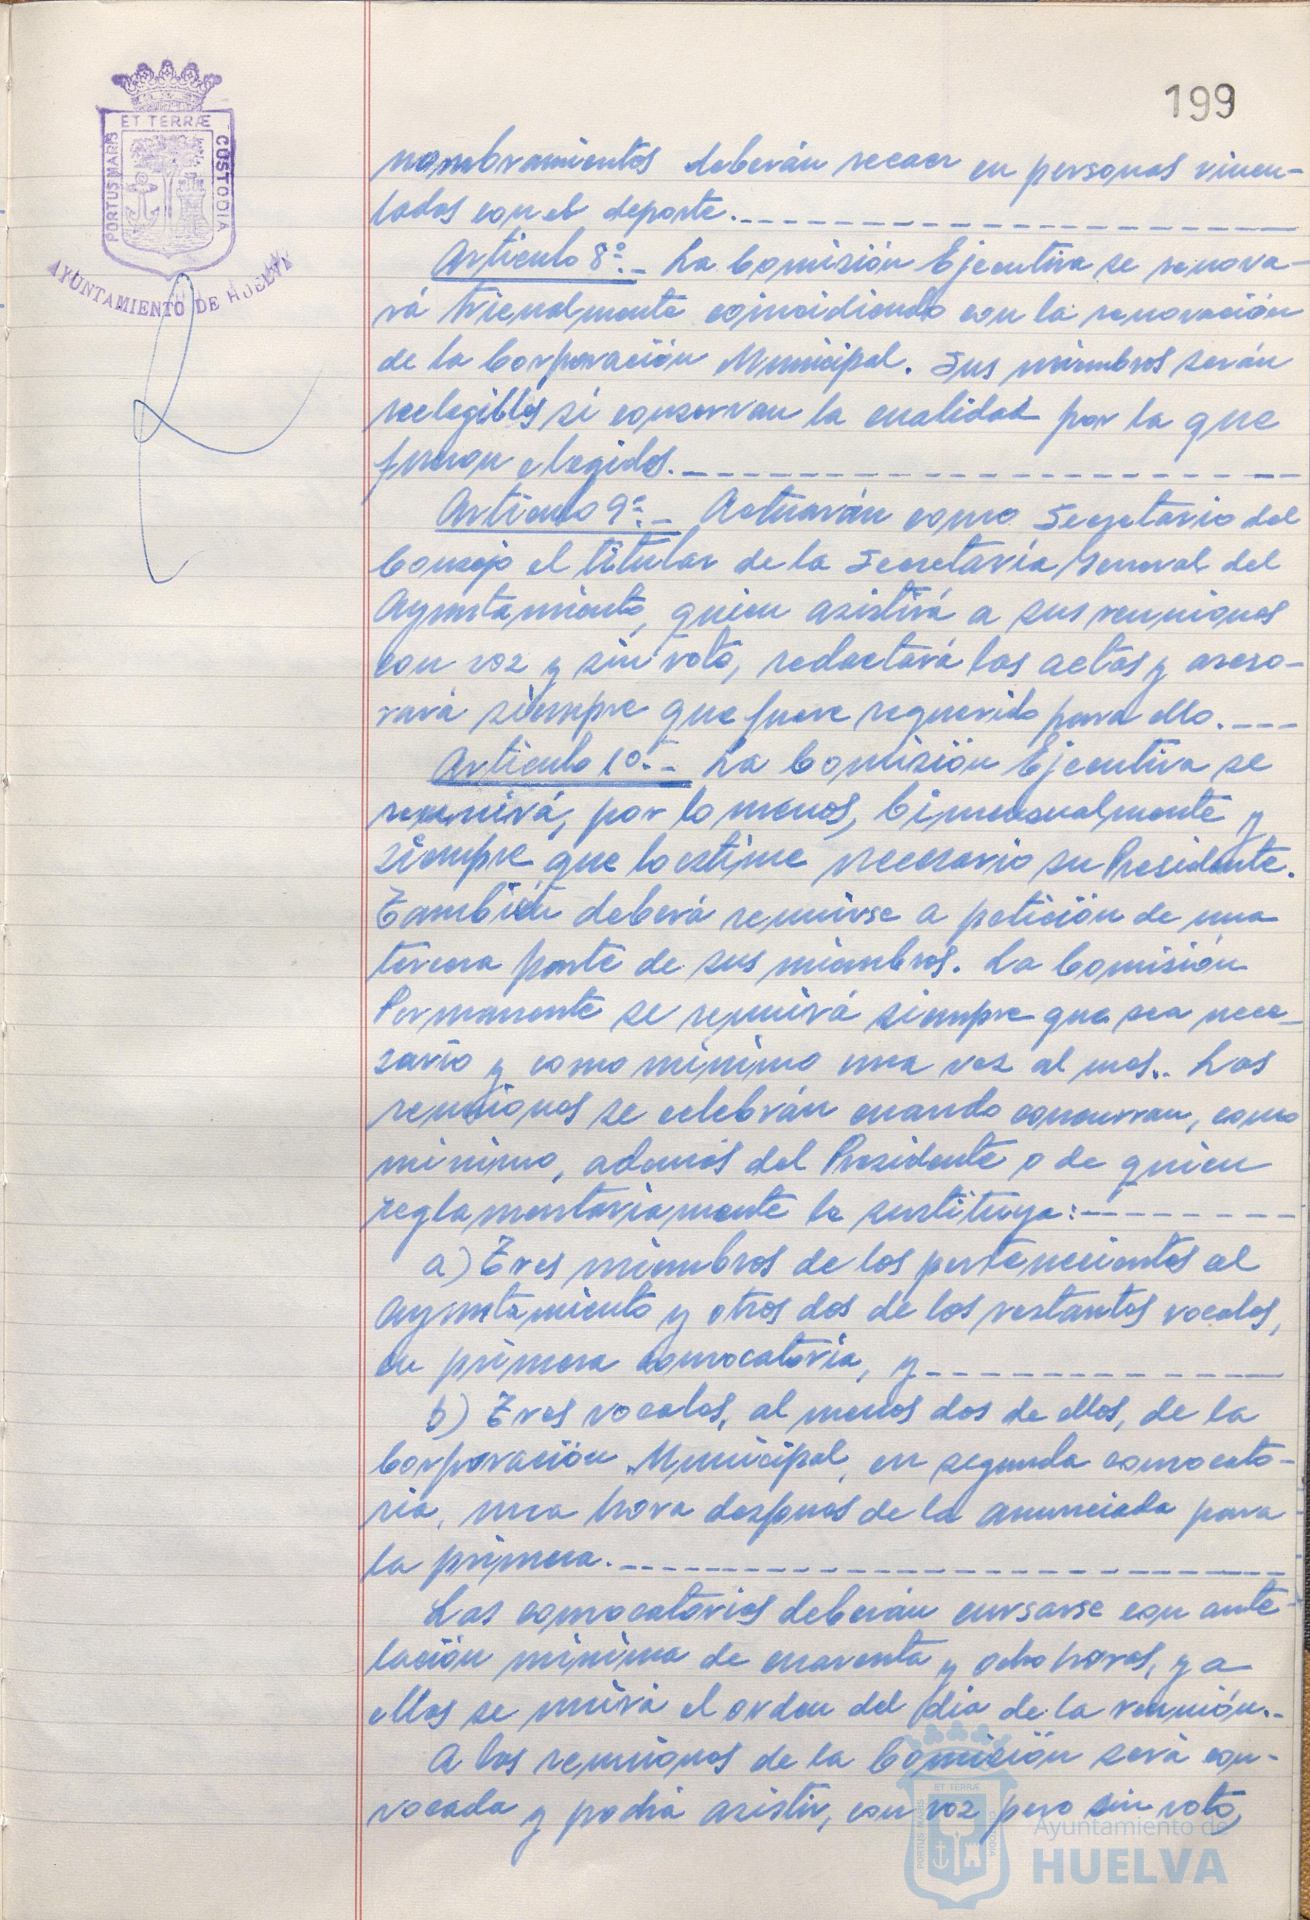 199
ET TERRÆ
PORTUS MARIS
CUSTODIA
AYUNTAMIENTO DE HUELVA
nombramientos deberán recaer en personas vincu-
ladas con el deporte.
Artículo 8º.- La Comisión Ejecutiva se renova-
rá trienalmente coincidiendo con la renovación
de la Corporación Municipal. Sus miembros serán
reelegibles si conservan la cualidad por la que
fueron elegidos.
Artículo 9º.- Actuarán como Secretario del
Consejo el titular de la Secretaría General del
Ayuntamiento, quien asistirá a sus reuniones
con voz y sin voto, redactará las actas y aseso-
rará siempre que fuere requerido para ello.
Artículo 10º.- La Comisión Ejecutiva se
reunirá, por lo menos, bimensualmente y
siempre que lo estime necesario su Presidente.
También deberá reunirse a petición de una
tercera parte de sus miembros. La Comisión
Permanente se reunirá siempre que sea nece-
sario y como mínimo una vez al mes.. Las
reuniones se celebrán cuando concurran, como
mínimo, además del Presidente o de quien
reglamentariamente le sustituya:
a) Tres miembros de los pertenecientes al
Ayuntamiento y otros dos de los restantes vocales,
en primera convocatoria, y
b) Tres vocales, al menos dos de ellos, de la
Corporación Municipal, en segunda convocato-
ria, una hora después de la anunciada para
la primera.
Las convocatorias deberán cursarse con ante-
lación mínima de cuarenta y ocho horas, y a
ellas se unirá el orden del día de la reunión.-
A las reuniones de la Comisión será con-
vocada y podrá asistir, con voz pero sin voto,
ET TERRÆ
PORTUS MARIS
CUSTODIA
Ayuntamiento de
HUELVA